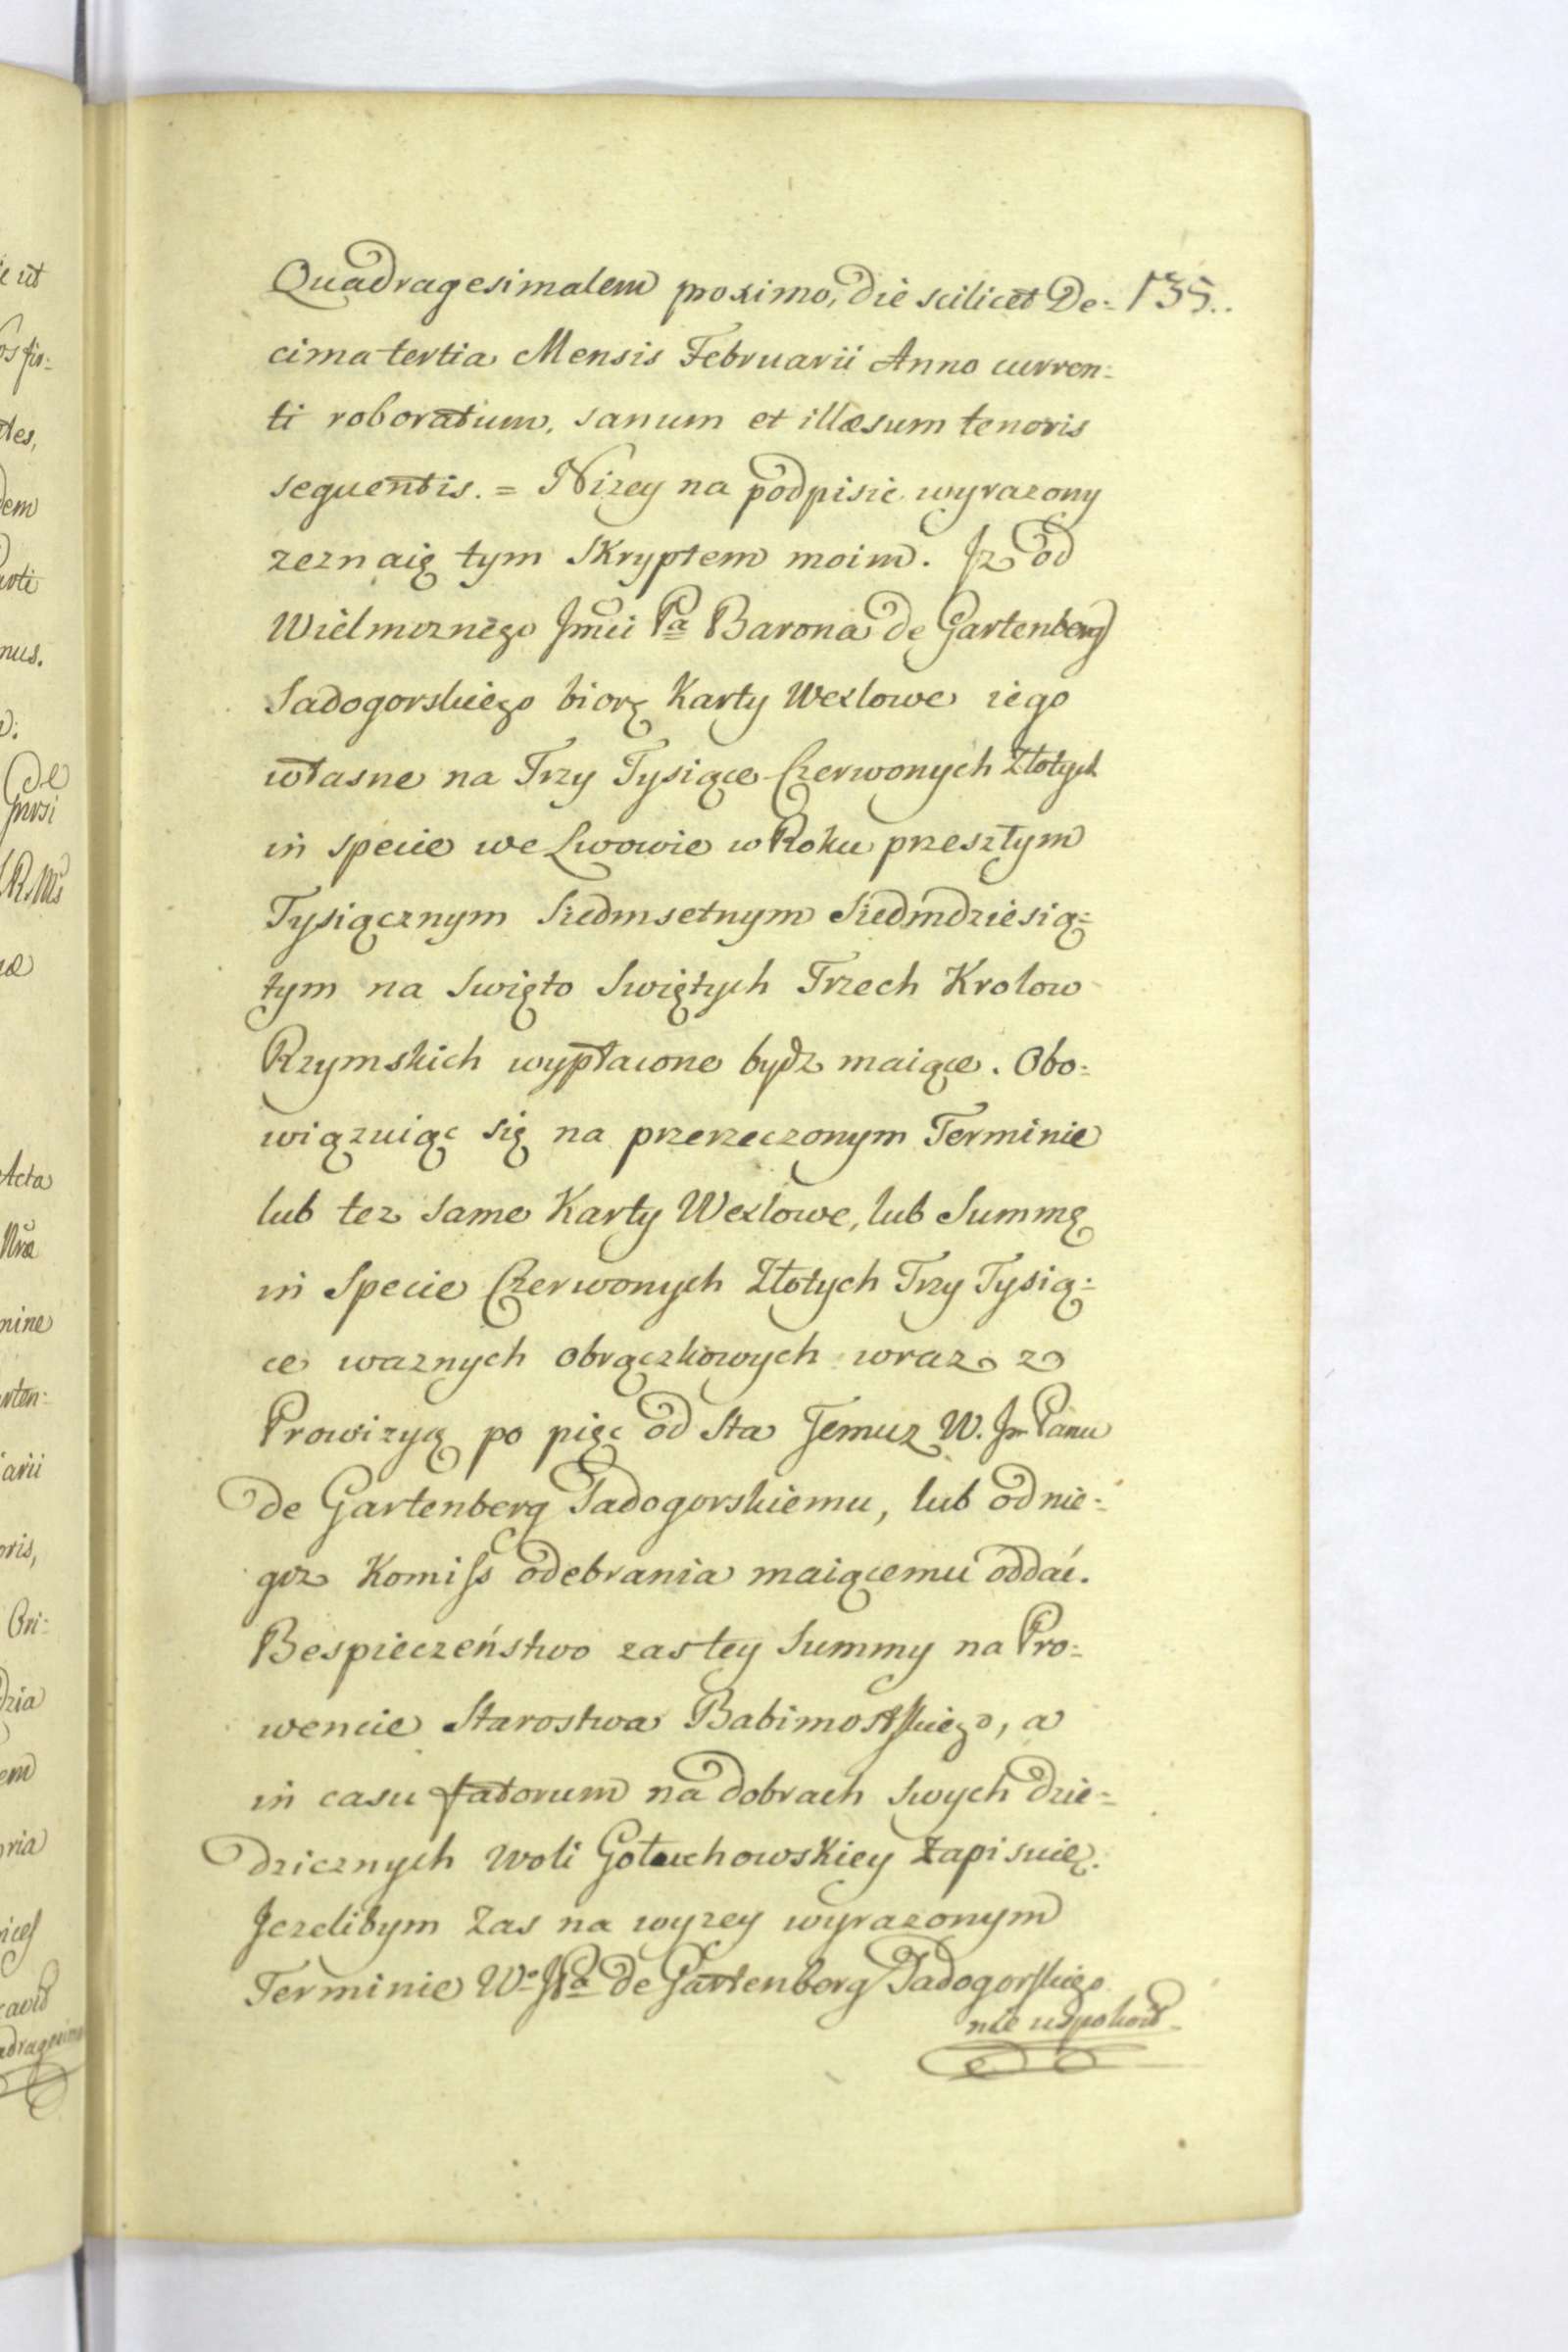 135..
Quadragesimalem proximo, die scilicet De:
cima tertia Mensis Februarii Anno curren:
ti roboratum, sanum et illæsum tenoris
sequentis. = Nizey na podpisie wyrazony
zeznaię tym Skryptem moim. Jz od
Wielmoznego Jmci Pa Barona de Gartenberg
Sadogorskiego biorę Karty Wexlowe iego
własne na Trzy Tysiące Czerwonych Złotych
in specie we Lwowie w Roku przeszłym
Tysiącznym Siedmsetnym Siedmdziesią:
tym na Swięto Swiętych Trzech Krolow
Rzymskich wypłacone bydz maiące. Obo:
wiązuiąc się na przerzeczonym Terminie
lub tez same Karty Wexlowe, lub Summę
in Specie Czerwonych Złotych Trzy Tysią:
ce waznych obrączkowych wraz z
Prowizyą po pięc od Sta Jemuz W. Jm Panu
de Gartenberg Sadogorskiemu, lub od nie:
goz Komiss odebrania maiącemu oddać.
Bespieczeństwo zas tey Summy na Pro:
wencie Starostwa Babimostskiego, a
in casu fatorum na dobrach swych dzie:
dzicznych Woli Gołuchowskiey Zapisuię.
Jezelibym Zas na wyzey wyrazonym
Terminie Wo JPa de Gartenberg Sadogorskiego
nie uspokoił